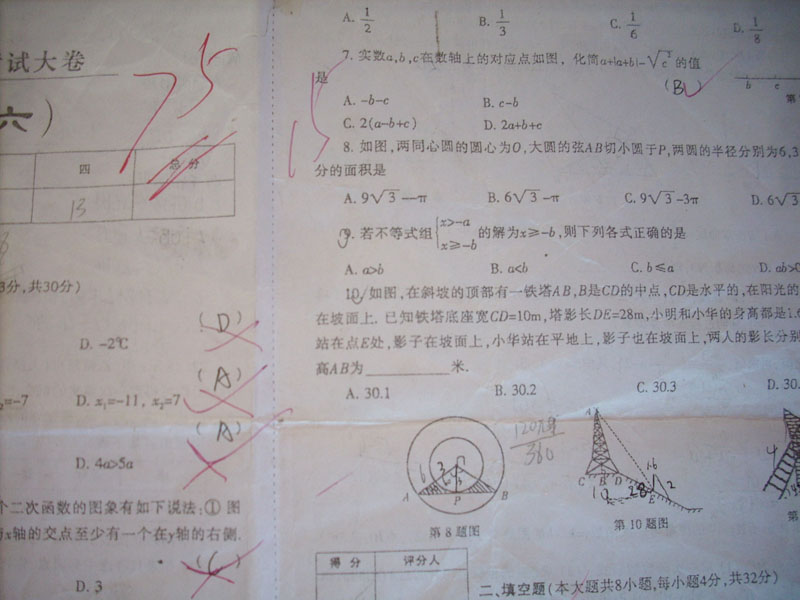 试大卷
六)
75
四 总分
13
3分,共30分)
D. -2℃
(D)
₂=-7 D. x₁=-11, x₂=7
(A)
D. 4a>5a
(A)
个二次函数的图象有如下说法:① 图
x轴的交点至少有一个在y轴的右侧.
(C)
D. 3
A. 1/2 B. 1/3 C. 1/6 D. 1/8
7. 实数a,b,c在数轴上的对应点如图, 化简a+|a+b|-√c² 的值
是 (B)
15
b c
第
A. -b-c B. c-b
C. 2(a-b+c) D. 2a+b+c
8. 如图,两同心圆的圆心为O,大圆的弦AB切小圆于P,两圆的半径分别为6,3
分的面积是
A. 9√3-π B. 6√3-π C. 9√3-3π D. 6√3
9. 若不等式组{x>-a x≥-b 的解为x≥-b,则下列各式正确的是
A. a>b B. a<b C. b≤a D. ab>0
10. 如图,在斜坡的顶部有一铁塔AB,B是CD的中点,CD是水平的,在阳光的
在坡面上. 已知铁塔底座宽CD=10m,塔影长DE=28m,小明和小华的身高都是1.6
站在点E处,影子在坡面上,小华站在平地上,影子也在坡面上,两人的影长分别
高AB为______米.
A. 30.1 B. 30.2 C. 30.3 D. 30.
6 3
A P B
第8题图
360
A
C B D E
10 28 1.6 2
第10题图
4
得分 评分人
二、填空题(本大题共8小题,每小题4分,共32分)